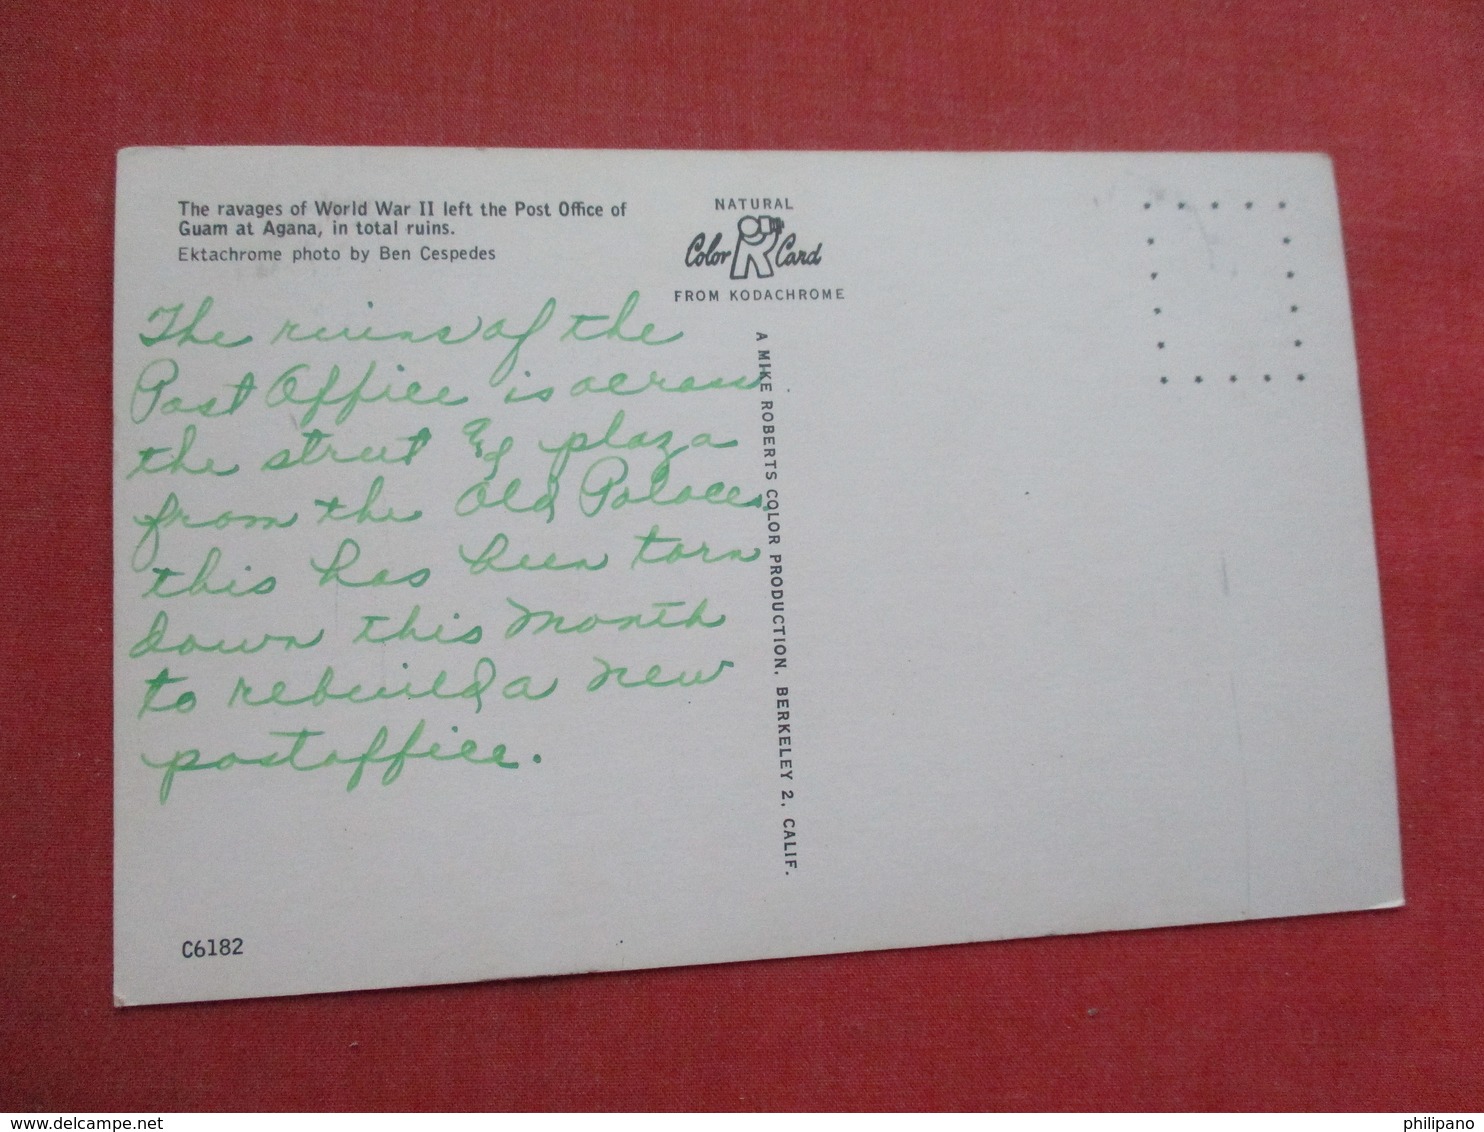 The ravages of World War II left the Post Office of
Guam at Agana, in total ruins.
Ektachrome photo by Ben Cespedes
NATURAL
Color Card
FROM KODACHROME
The ruins of the
Post Office is across
the street & plaza
from the Old Palace,
this has been torn
down this month
to rebuild a new
postoffice.
A MIKE ROBERTS COLOR PRODUCTION. BERKELEY 2, CALIF.
C6182
delcampe.net
philipano